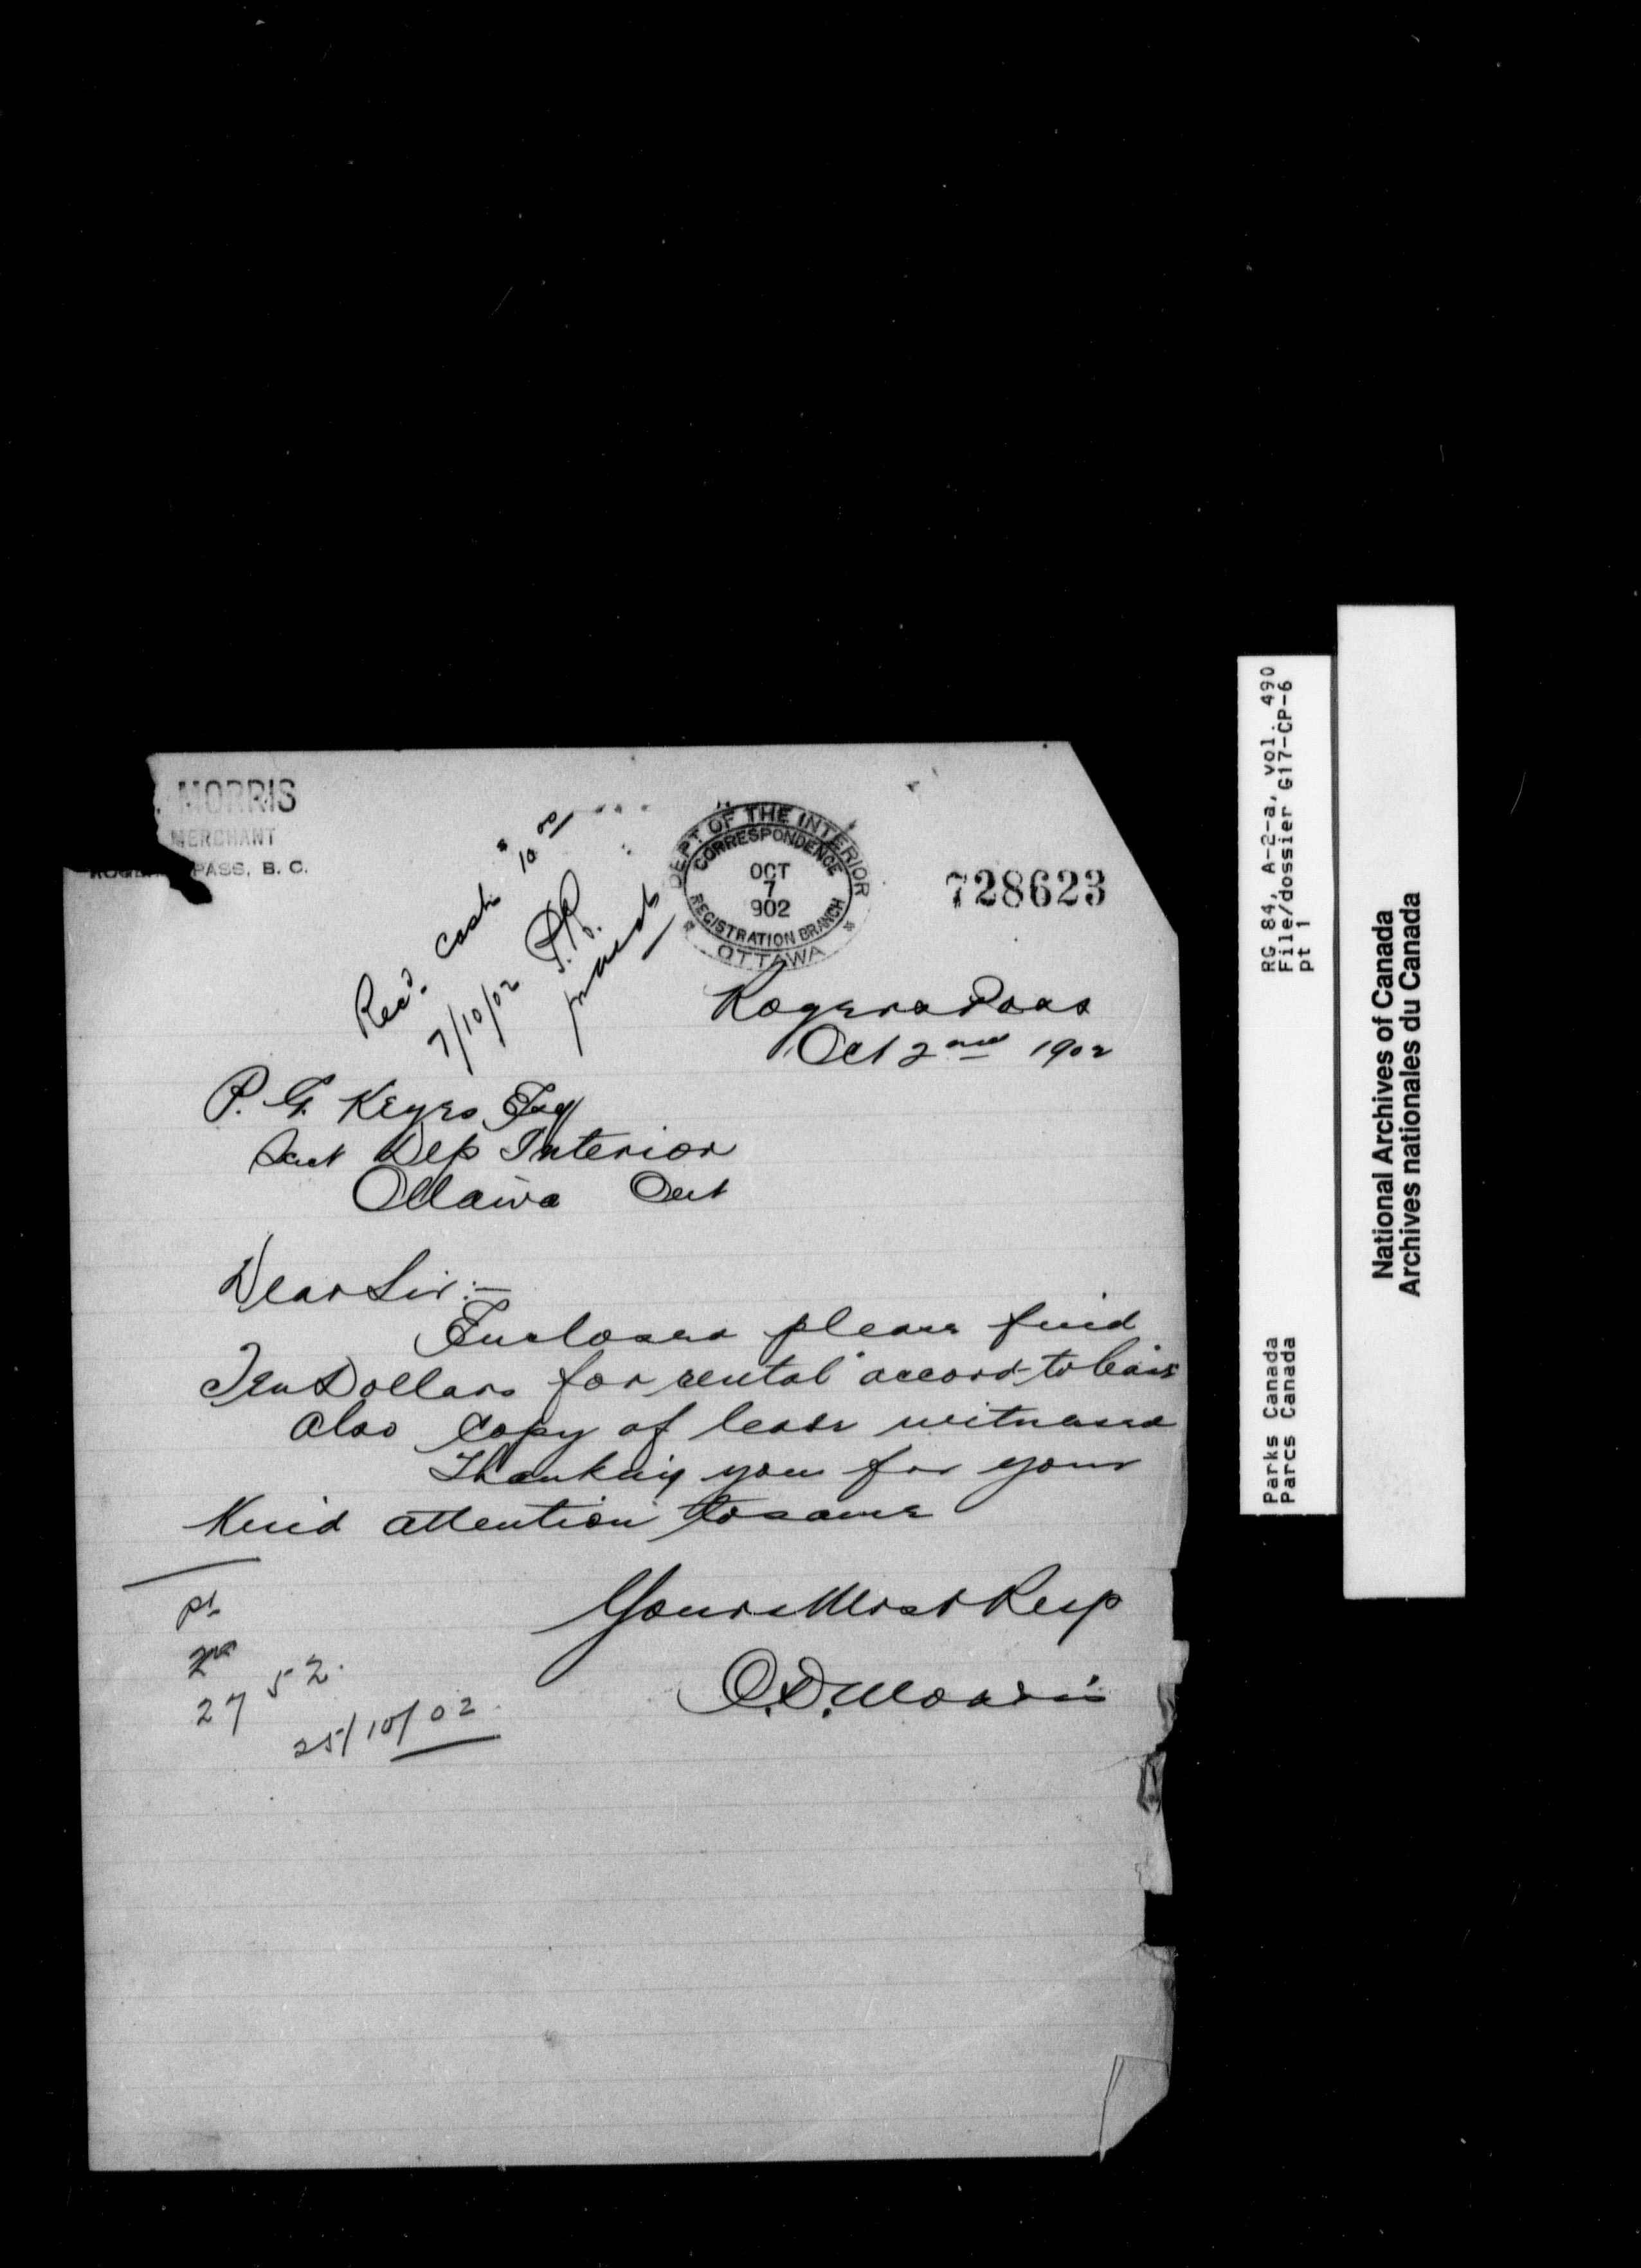 MORRIS
MERCHANT
ROGERS PASS, B. C.
Recd. Cash $10 00
7/10/02
DEPT OF THE INTERIOR
CORRESPONDENCE
OCT
7
902
REGISTRATION BRANCH
OTTAWA
728623
Rogers Pass
Oct 2nd 1902
P. G. Keyes Esq
Sect Dep Interior
Ottawa Ont
Dear Sir:-
Enclosed please find
Ten Dollars for rental accord to leas
also copy of lease witnessed
Thanking you for your
Kind attention to same
Yours Most Resp
O.D. Morris
27 52.
25/10/02.
RG 84, A-2-a, vol. 490
File/dossier G17-CP-6
pt 1
Parks Canada
Parcs Canada
National Archives of Canada
Archives nationales du Canada